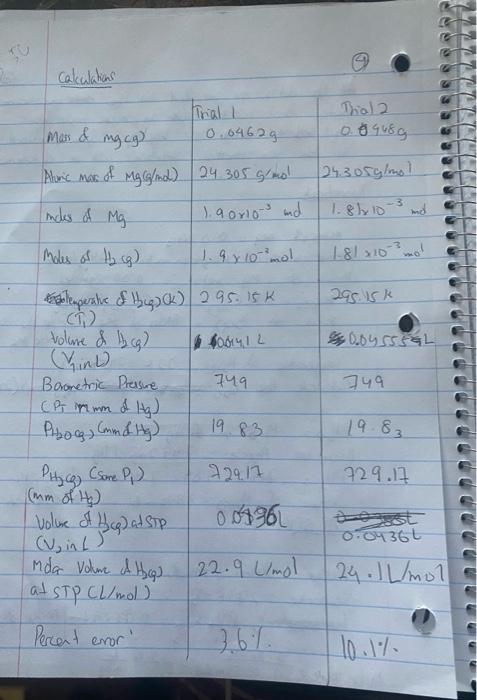 ④
Calculations
Trial 1 Trial 2
Mass of mg(g) 0.0462g 0.0448g
Atomic mass of Mg(g/mol) 24.305 g/mol 24.305g/mol
moles of Mg 1.90x10⁻³ mol 1.81x10⁻³ mol
Moles of H₂(g) 1.9x10⁻³mol 1.81x10⁻³mol
Temperature of H₂(g)(K) 295.15K 295.15K
(T₁)
Volume of H₂(g)
(V₁ in L)
Barometric Pressure 749 749
(PT in mm of Hg)
PH₂O(g) (mm of Hg) 19.83 19.83
PH₂(g) (same P₁) 729.17 729.17
(mm of Hg)
Volume of H₂(g) at STP
(V₂ in L) 0.0436L
Molar Volume of H₂(g) 22.9 L/mol 24.1L/mol
at STP (L/mol)
Percent error 3.6% 10.1%